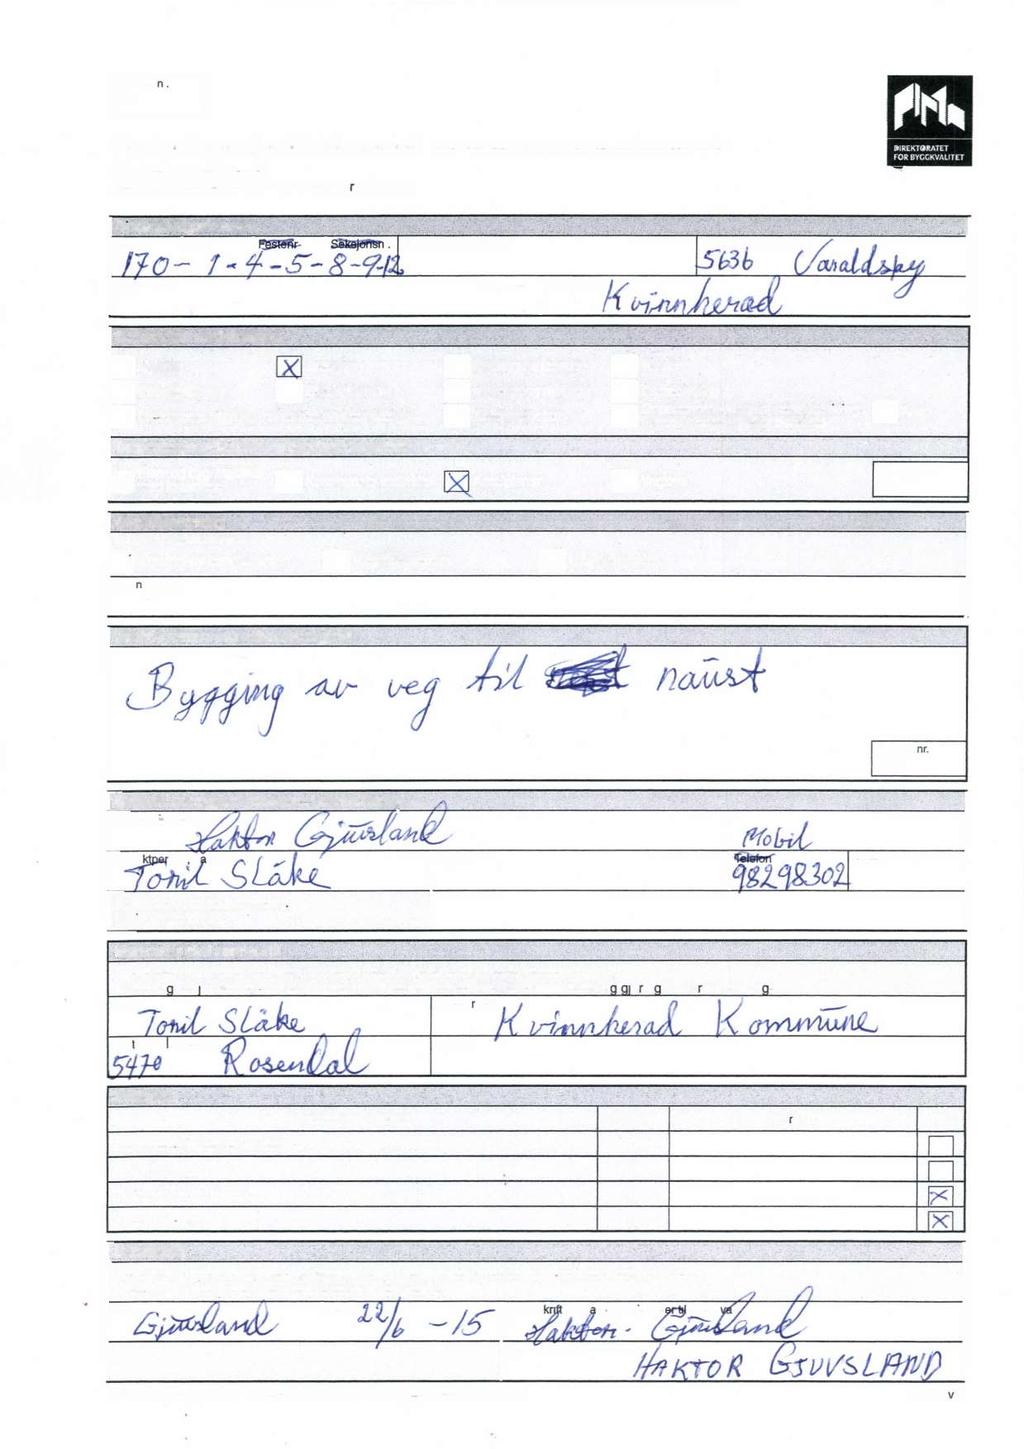 n.
DIREKTORATET
FOR BYGGKVALITET
r
Festenr Seksjonsn.
170- 1-4-5-8-9-12 5636 Varaldsøy
Kvinnherad
n
Bygging av veg til naust
nr.
Haktor Gjuvsland Mobil
ktper a Telefon
Toril Slåke 98298302
g j g gj r g r g
r
Toril Slåke Kvinnherad Kommune
5470 Rosendal
r
krift a er til va
Gjuvsland 22/6 -15 Haktor Gjuvsland
HAKTOR GJUVSLAND
v